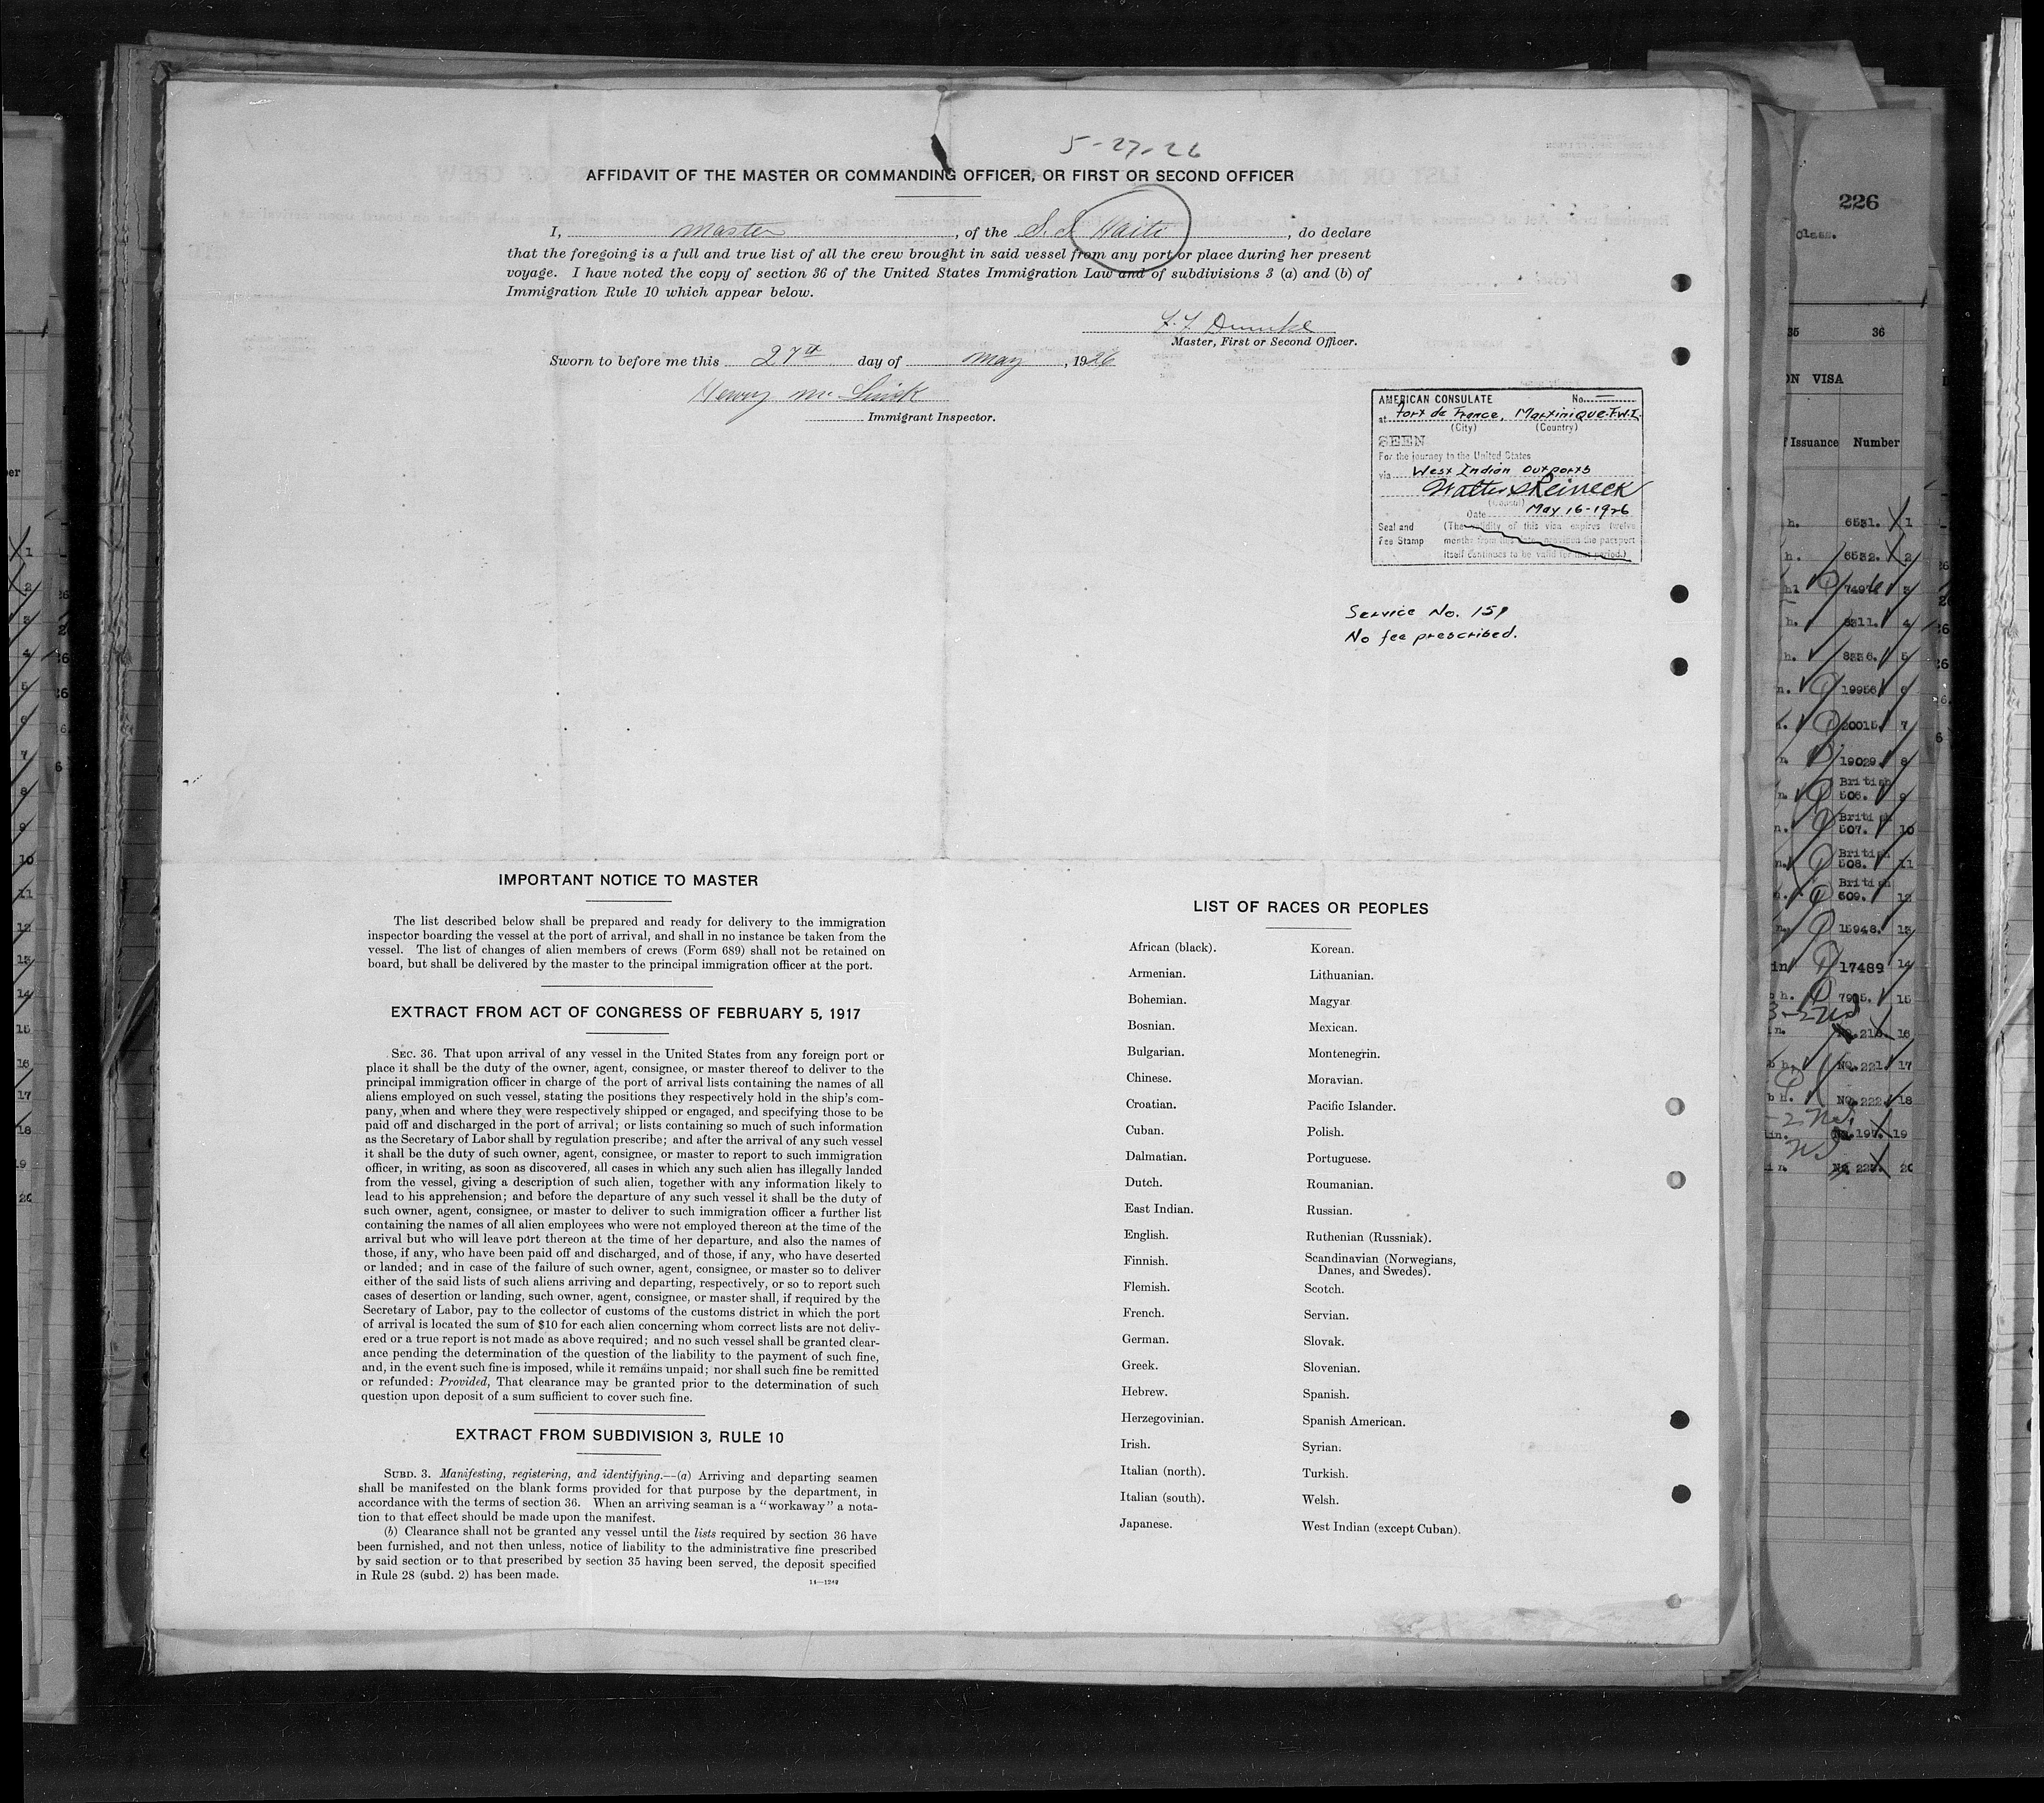 5-27-26
AFFIDAVIT OF THE MASTER OR COMMANDING OFFICER, OR FIRST OR SECOND OFFICER
I, Master, of the S.S. Haiti, do declare
that the foregoing is a full and true list of all the crew brought in said vessel from any port or place during her present
voyage. I have noted the copy of section 36 of the United States Immigration Law and of subdivisions 3 (a) and (b) of
Immigration Rule 10 which appear below.
Master, First or Second Officer.
Sworn to before me this 27th day of May, 1926
Henry
Immigrant Inspector.
AMERICAN CONSULATE No. —
at Fort de France, Martinique. F.W.I.
(City) (Country)
SEEN
For the journey to the United States
via West Indian outports
Walter S Reineck
(Consul)
Date May 16-1926
Seal and (The validity of this visa expires twelve
Fee Stamp months from this date, provided the passport
itself continues to be valid for that period.)
Service No. 159
No fee prescribed.
IMPORTANT NOTICE TO MASTER
The list described below shall be prepared and ready for delivery to the immigration
inspector boarding the vessel at the port of arrival, and shall in no instance be taken from the
vessel. The list of changes of alien members of crews (Form 689) shall not be retained on
board, but shall be delivered by the master to the principal immigration officer at the port.
EXTRACT FROM ACT OF CONGRESS OF FEBRUARY 5, 1917
SEC. 36. That upon arrival of any vessel in the United States from any foreign port or
place it shall be the duty of the owner, agent, consignee, or master thereof to deliver to the
principal immigration officer in charge of the port of arrival lists containing the names of all
aliens employed on such vessel, stating the positions they respectively hold in the ship's com-
pany, when and where they were respectively shipped or engaged, and specifying those to be
paid off and discharged in the port of arrival; or lists containing so much of such information
as the Secretary of Labor shall by regulation prescribe; and after the arrival of any such vessel
it shall be the duty of such owner, agent, consignee, or master to report to such immigration
officer, in writing, as soon as discovered, all cases in which any such alien has illegally landed
from the vessel, giving a description of such alien, together with any information likely to
lead to his apprehension; and before the departure of any such vessel it shall be the duty of
such owner, agent, consignee, or master to deliver to such immigration officer a further list
containing the names of all alien employees who were not employed thereon at the time of the
arrival but who will leave port thereon at the time of her departure, and also the names of
those, if any, who have been paid off and discharged, and of those, if any, who have deserted
or landed; and in case of the failure of such owner, agent, consignee, or master so to deliver
either of the said lists of such aliens arriving and departing, respectively, or so to report such
cases of desertion or landing, such owner, agent, consignee, or master shall, if required by the
Secretary of Labor, pay to the collector of customs of the customs district in which the port
of arrival is located the sum of $10 for each alien concerning whom correct lists are not deliv-
ered or a true report is not made as above required; and no such vessel shall be granted clear-
ance pending the determination of the question of the liability to the payment of such fine,
and, in the event such fine is imposed, while it remains unpaid; nor shall such fine be remitted
or refunded: Provided, That clearance may be granted prior to the determination of such
question upon deposit of a sum sufficient to cover such fine.
EXTRACT FROM SUBDIVISION 3, RULE 10
SUBD. 3. Manifesting, registering, and identifying.—(a) Arriving and departing seamen
shall be manifested on the blank forms provided for that purpose by the department, in
accordance with the terms of section 36. When an arriving seaman is a "workaway" a nota-
tion to that effect should be made upon the manifest.
(b) Clearance shall not be granted any vessel until the lists required by section 36 have
been furnished, and not then unless, notice of liability to the administrative fine prescribed
by said section or to that prescribed by section 35 having been served, the deposit specified
in Rule 28 (subd. 2) has been made.
14—1249
LIST OF RACES OR PEOPLES
African (black).
Armenian.
Bohemian.
Bosnian.
Bulgarian.
Chinese.
Croatian.
Cuban.
Dalmatian.
Dutch.
East Indian.
English.
Finnish.
Flemish.
French.
German.
Greek.
Hebrew.
Herzegovinian.
Irish.
Italian (north).
Italian (south).
Japanese.
Korean.
Lithuanian.
Magyar
Mexican.
Montenegrin.
Moravian.
Pacific Islander.
Polish.
Portuguese.
Roumanian.
Russian.
Ruthenian (Russniak).
Scandinavian (Norwegians,
Danes, and Swedes).
Scotch.
Servian.
Slovak.
Slovenian.
Spanish.
Spanish American.
Syrian.
Turkish.
Welsh.
West Indian (except Cuban).
226
Class.
35 36
ON VISA
Issuance Number
6531. 1
6532. 2
4
5
19956 6
20015 7
19029. 8
British
508. 9
British
507. 10
British
508. 11
British
509. 12
15948. 13
17489 14
15
16
No. 221. 17
No. 222. 18
19